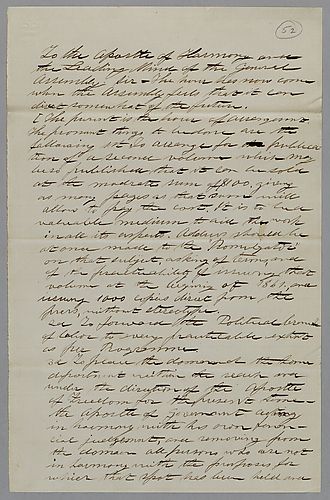 52
To the Apostle of Harmony and
the Leading Mind of the General
Assembly, Sir - The hour has now come
when the Assembly feels that it can
direct somewhat of the future.
The present is the hour of arrangement
The prominent things to be done are the
following. 1st To arrange for the publica
tion of a second volume which may
be so published that it can be sold
at the moderate sum of $1.00, giving
as many pages as that sum will
allow to pay the cost. It is to be a
valuable medium to aid the work
in all its aspects. Address should be
at once made to the "Promulgator"
on that subject, asking of terms, and
of the practicability of issuing that
volume at the beginning of 1861, and
issuing 1000 copies direct from the
press, without stereotype.
2d To forward the Political branch
of labor to every practicable extent
as per Programme
3d To place the domain at the home
department within the reach and
under the direction of the Apostle
of Freedom for the present time
the Apostle of Government acting
in harmony with his own finan-
cial judgement, and removing from
the domain all persons who are not
in harmony with the purposes for
which that spot has been held and